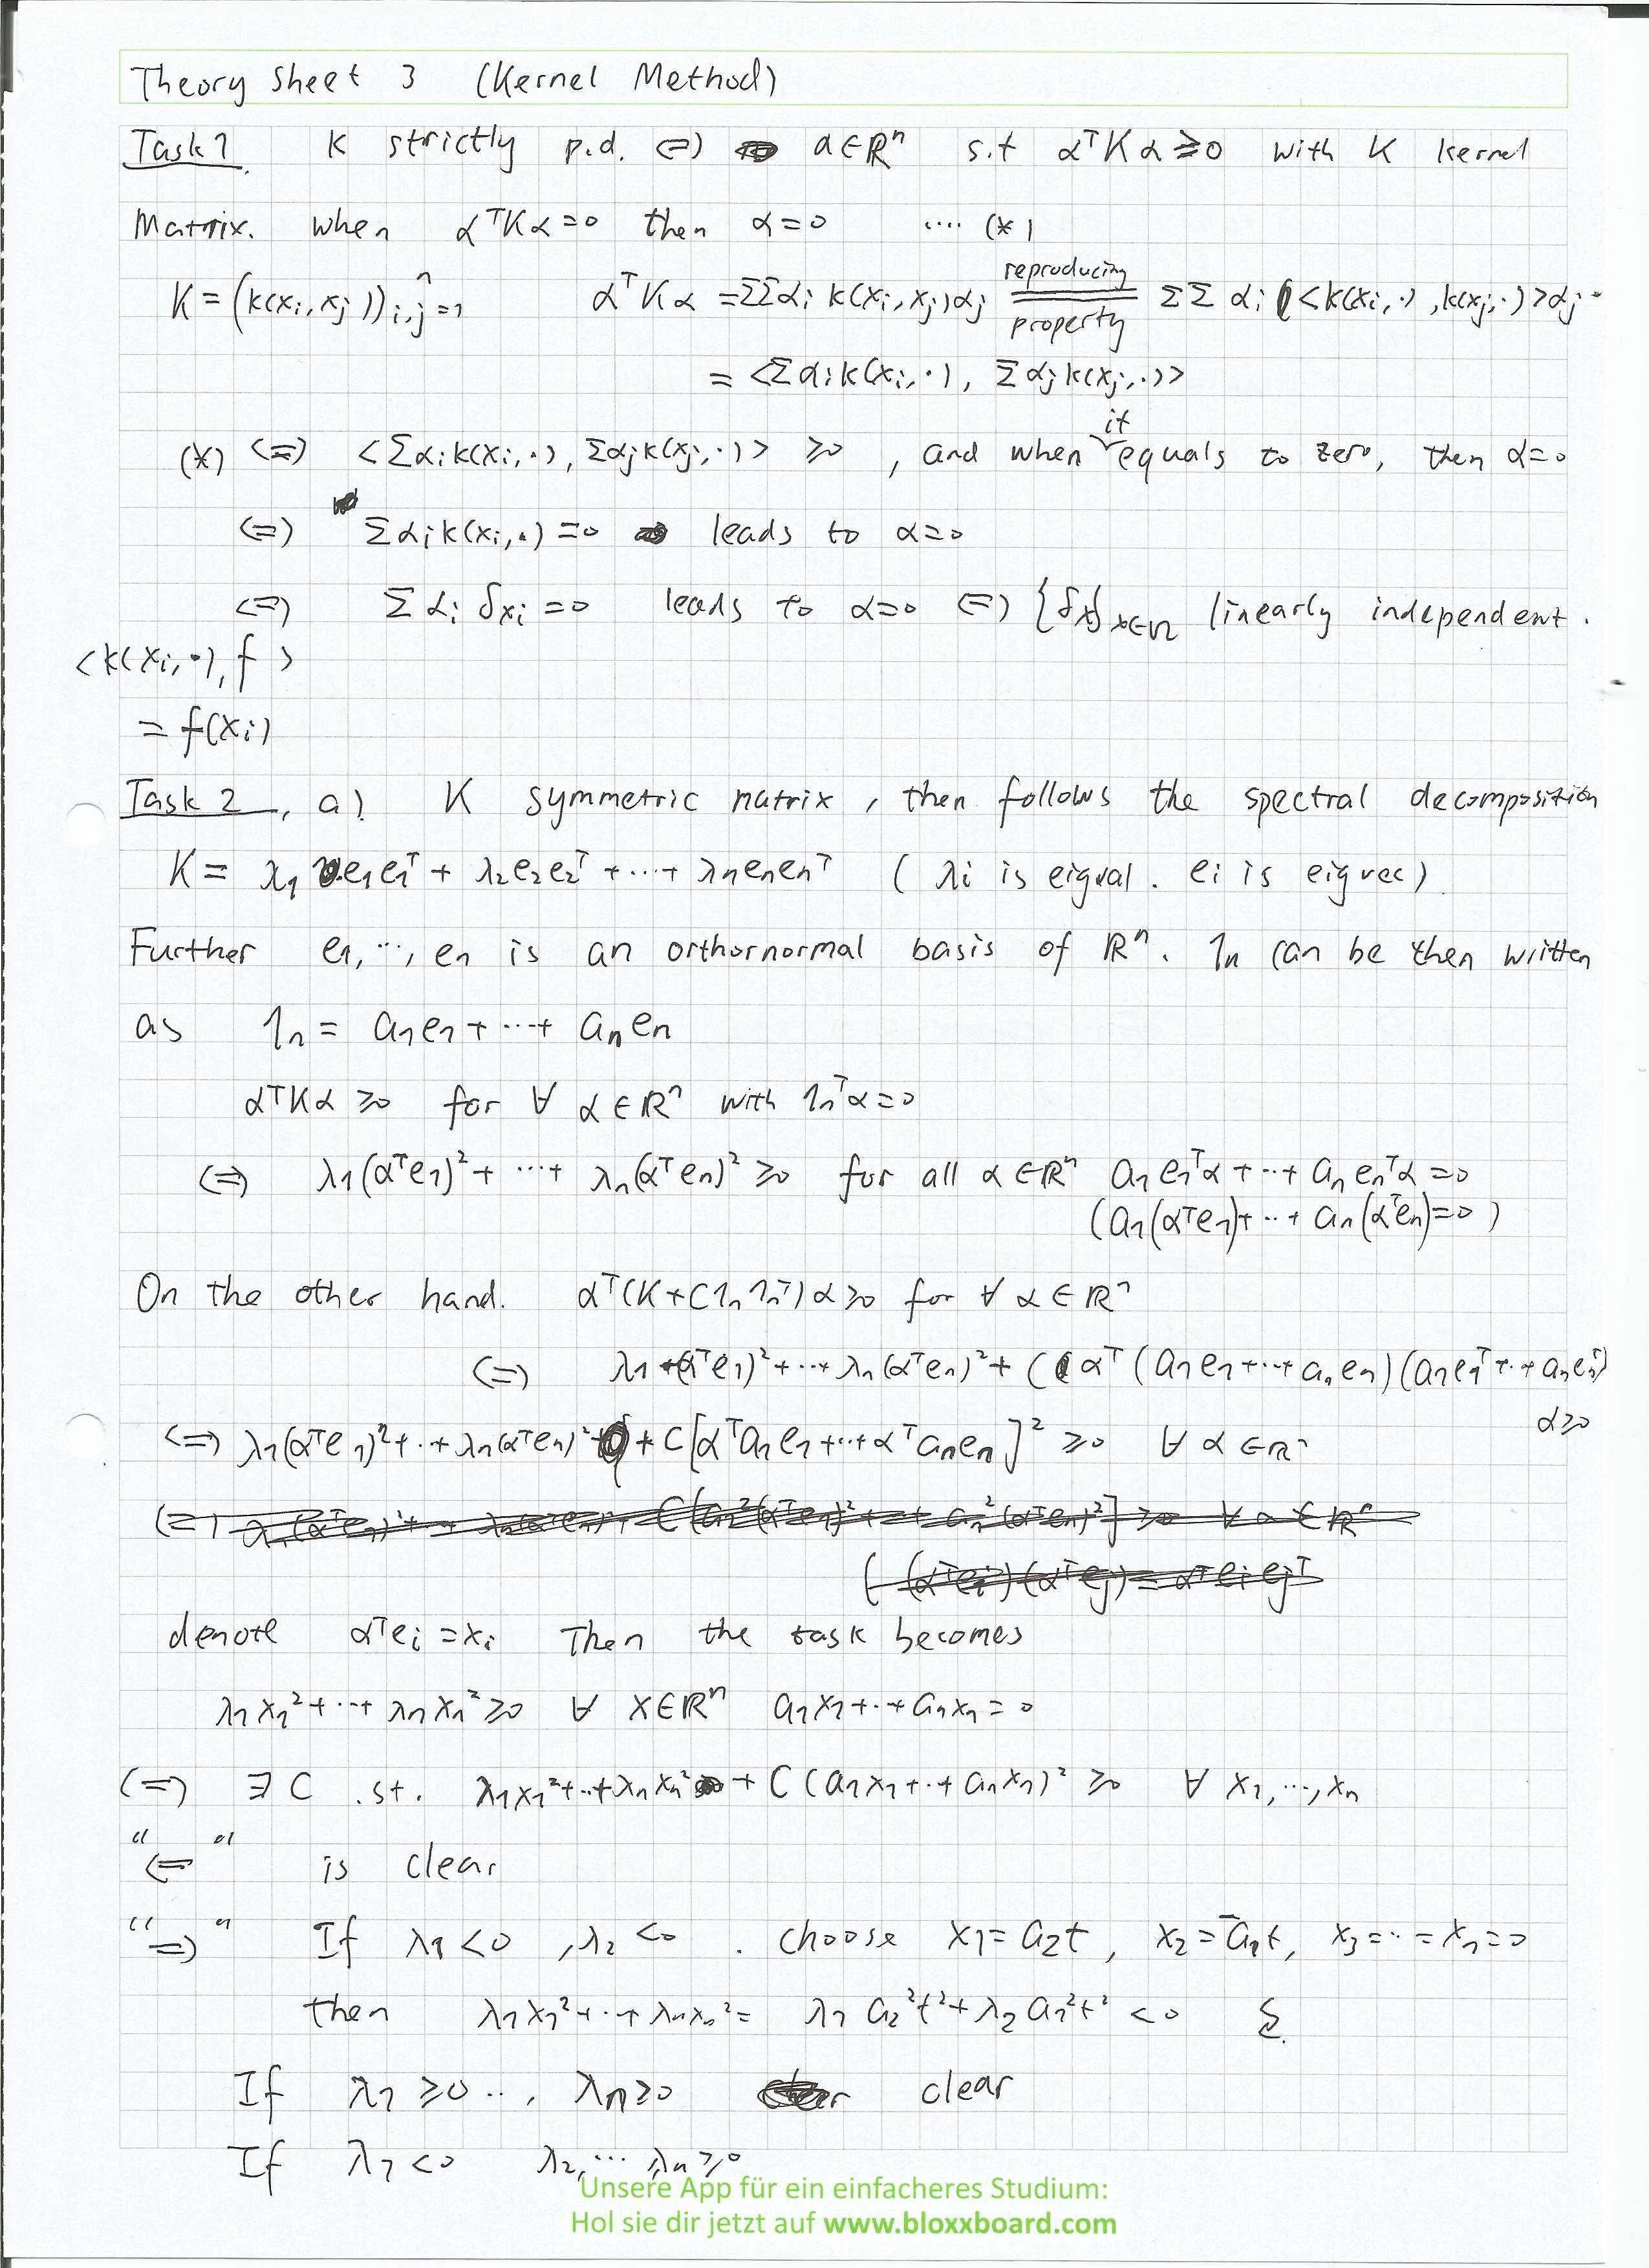 Theory Sheet 3 (Kernel Method)
Task 1. K strictly p.d. (=) α∈ℝⁿ s.t αᵀKα≥0 with K kernel
Matrix. when αᵀKα=0 then α=0 .... (*)
K=(k(xᵢ,xⱼ))ⁿᵢ,ⱼ₌₁ αᵀKα =ΣΣαᵢ k(xᵢ,xⱼ)αⱼ reproducing property ΣΣ αᵢ (<k(xᵢ,·),k(xⱼ,·)>αⱼ
= <Σαᵢk(xᵢ,·), Σαⱼk(xⱼ,·)>
(*) <=> <Σαᵢk(xᵢ,·), Σαⱼk(xⱼ,·)> ≥0 , and when it equals to zero, then α=0
<=> Σαᵢk(xᵢ,·)=0 leads to α=0
<=> Σαᵢ δxᵢ=0 leads to α=0 <=> {δx}x∈Ω linearly independent.
<k(xᵢ,·),f>
= f(xᵢ)
Task 2, a). K symmetric matrix, then follows the spectral decomposition
K= λ₁e₁e₁ᵀ + λ₂e₂e₂ᵀ +···+ λₙeₙeₙᵀ ( λᵢ is eigval. eᵢ is eigvec)
Further e₁,···,eₙ is an orthornormal basis of ℝⁿ. 1ₙ can be then written
as 1ₙ = a₁e₁+···+ aₙeₙ
αᵀKα ≥0 for ∀ α∈ℝⁿ with 1ₙᵀα=0
<=> λ₁(αᵀe₁)²+ ···+ λₙ(αᵀeₙ)² ≥0 for all α∈ℝⁿ a₁e₁ᵀα+··+ aₙeₙᵀα=0
(a₁(αᵀe₁)+··+ aₙ(αᵀeₙ)=0)
On the other hand. αᵀ(K+C1ₙ1ₙᵀ)α≥0 for ∀ α∈ℝⁿ
<=> λ₁(αᵀe₁)²+··+λₙ(αᵀeₙ)²+ C αᵀ(a₁e₁+··+aₙeₙ)(a₁e₁ᵀ+··+aₙeₙᵀ)
α≥0
<=> λ₁(αᵀe₁)²+··+λₙ(αᵀeₙ)²+C[αᵀa₁e₁+··+αᵀaₙeₙ]² ≥0 ∀ α∈ℝⁿ
denote αᵀeᵢ=xᵢ Then the task becomes
λ₁x₁²+··+λₙxₙ²≥0 ∀ x∈ℝⁿ a₁x₁+··+aₙxₙ=0
<=> ∃ C .st. λ₁x₁²+··+λₙxₙ² + C(a₁x₁+··+aₙxₙ)² ≥0 ∀ x₁,···,xₙ
"<=" is clear
"=>" If λ₁<0 ,λ₂<0 . choose x₁=a₂t, x₂=-a₁t, x₃=··=xₙ=0
then λ₁x₁²+··+λₙxₙ²= λ₁a₂²t²+λ₂a₁²t² <0
If λ₁≥0··, λₙ≥0 clear
If λ₁<0 λ₂,···,λₙ≥0
Unsere App für ein einfacheres Studium:
Hol sie dir jetzt auf www.bloxxboard.com